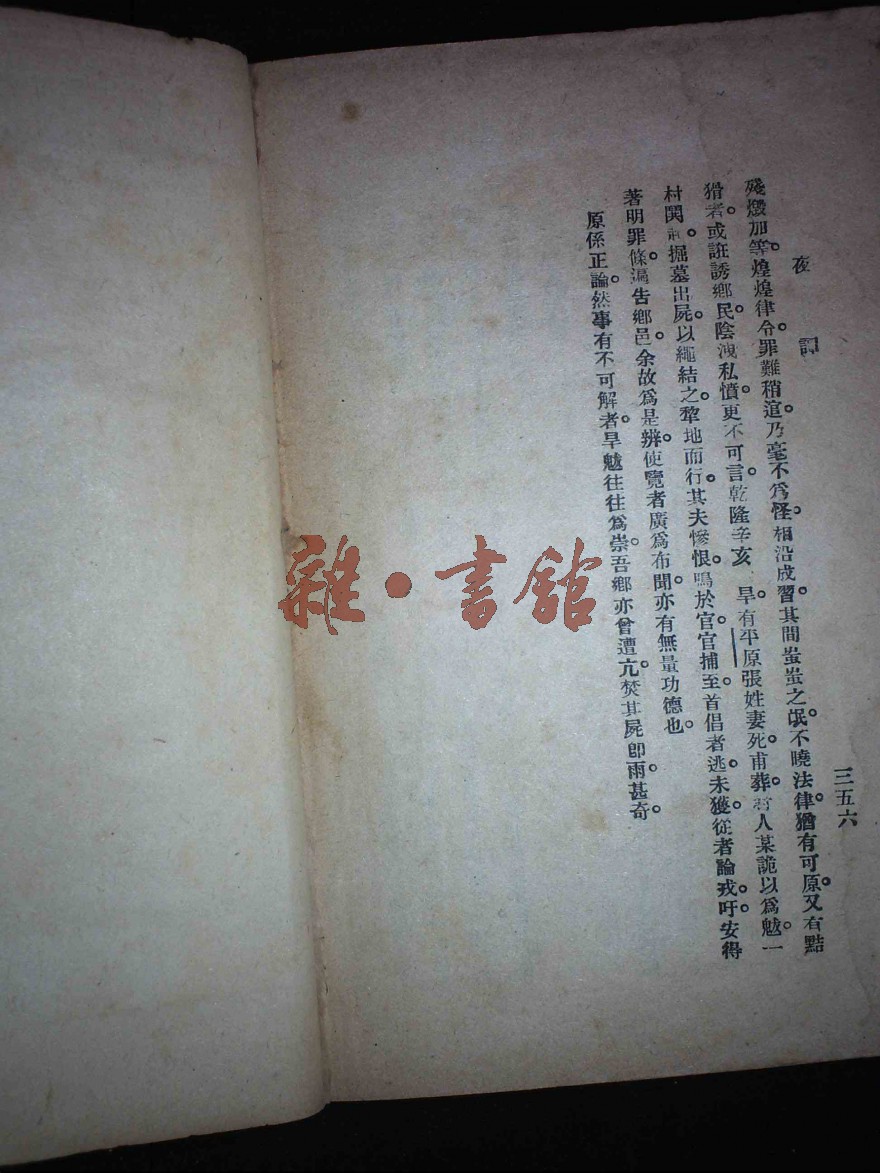 夜譚
三五六
殘燬加等。煌煌律令。罪難稍逭。乃毫不爲怪。相沿成習。其間蚩蚩之氓。不曉法律。猶有可原。又有黠
猾者。或誑誘鄉民。陰洩私憤。更不可言。乾隆辛亥、旱。有平原張姓妻死。甫葬。有人某詭以爲魃。一
村鬨。掘墓出屍。以繩結之。犂地而行。其夫慘恨。鳴於官。官捕至。首倡者逃。未獲。從者論戍。吁。安得
著明罪條。徧告鄉邑。余故爲是辨。使覽者廣爲布聞。亦有無量功德也。
原係正論。然事有不可解者。旱魃往往爲祟。吾鄉亦曾遭亢。焚其屍卽雨。甚奇。
雜·書館